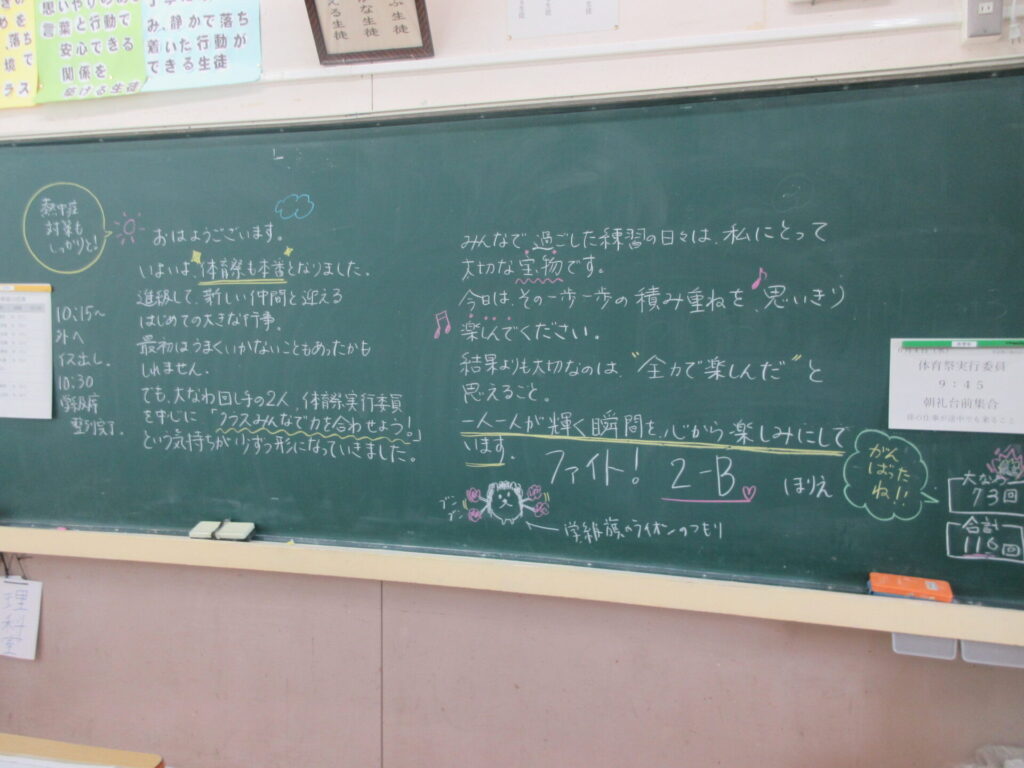 思いやりのある
言葉と行動で
安心できる
関係を
築ける生徒
み、静かで落ち
着いた行動が
できる生徒
熱中症
対策も
しっかりと!
10:15~
外へ
イス出し。
10:30
学級席
整列完了.
おはようございます。
いよいよ、体育祭も本番となりました。
進級して、新しい仲間と迎える
はじめての大きな行事。
最初はうまくいかないこともあったかも
しれません。
でも、大なわ回し手の2人、体育祭実行委員
を中心に「クラスみんなで力を合わせよう!」
という気持ちが少しずつ形になっていきました。
みんなで過ごした練習の日々は、私にとって
大切な宝物です。
今日は、その一歩一歩の積み重ねを、思いきり
楽しんでください。
結果よりも大切なのは、"全力で楽しんだ"と
思えること。
一人一人が輝く瞬間を、心から楽しみにして
います。
ファイト! 2-B ほりえ
ブン
ブン
←学級旗のライオンのつもり
がん
ばった
ね!!
大なわ
73回
合計
116回
体育祭実行委員
9:45
朝礼台前集合
理科室